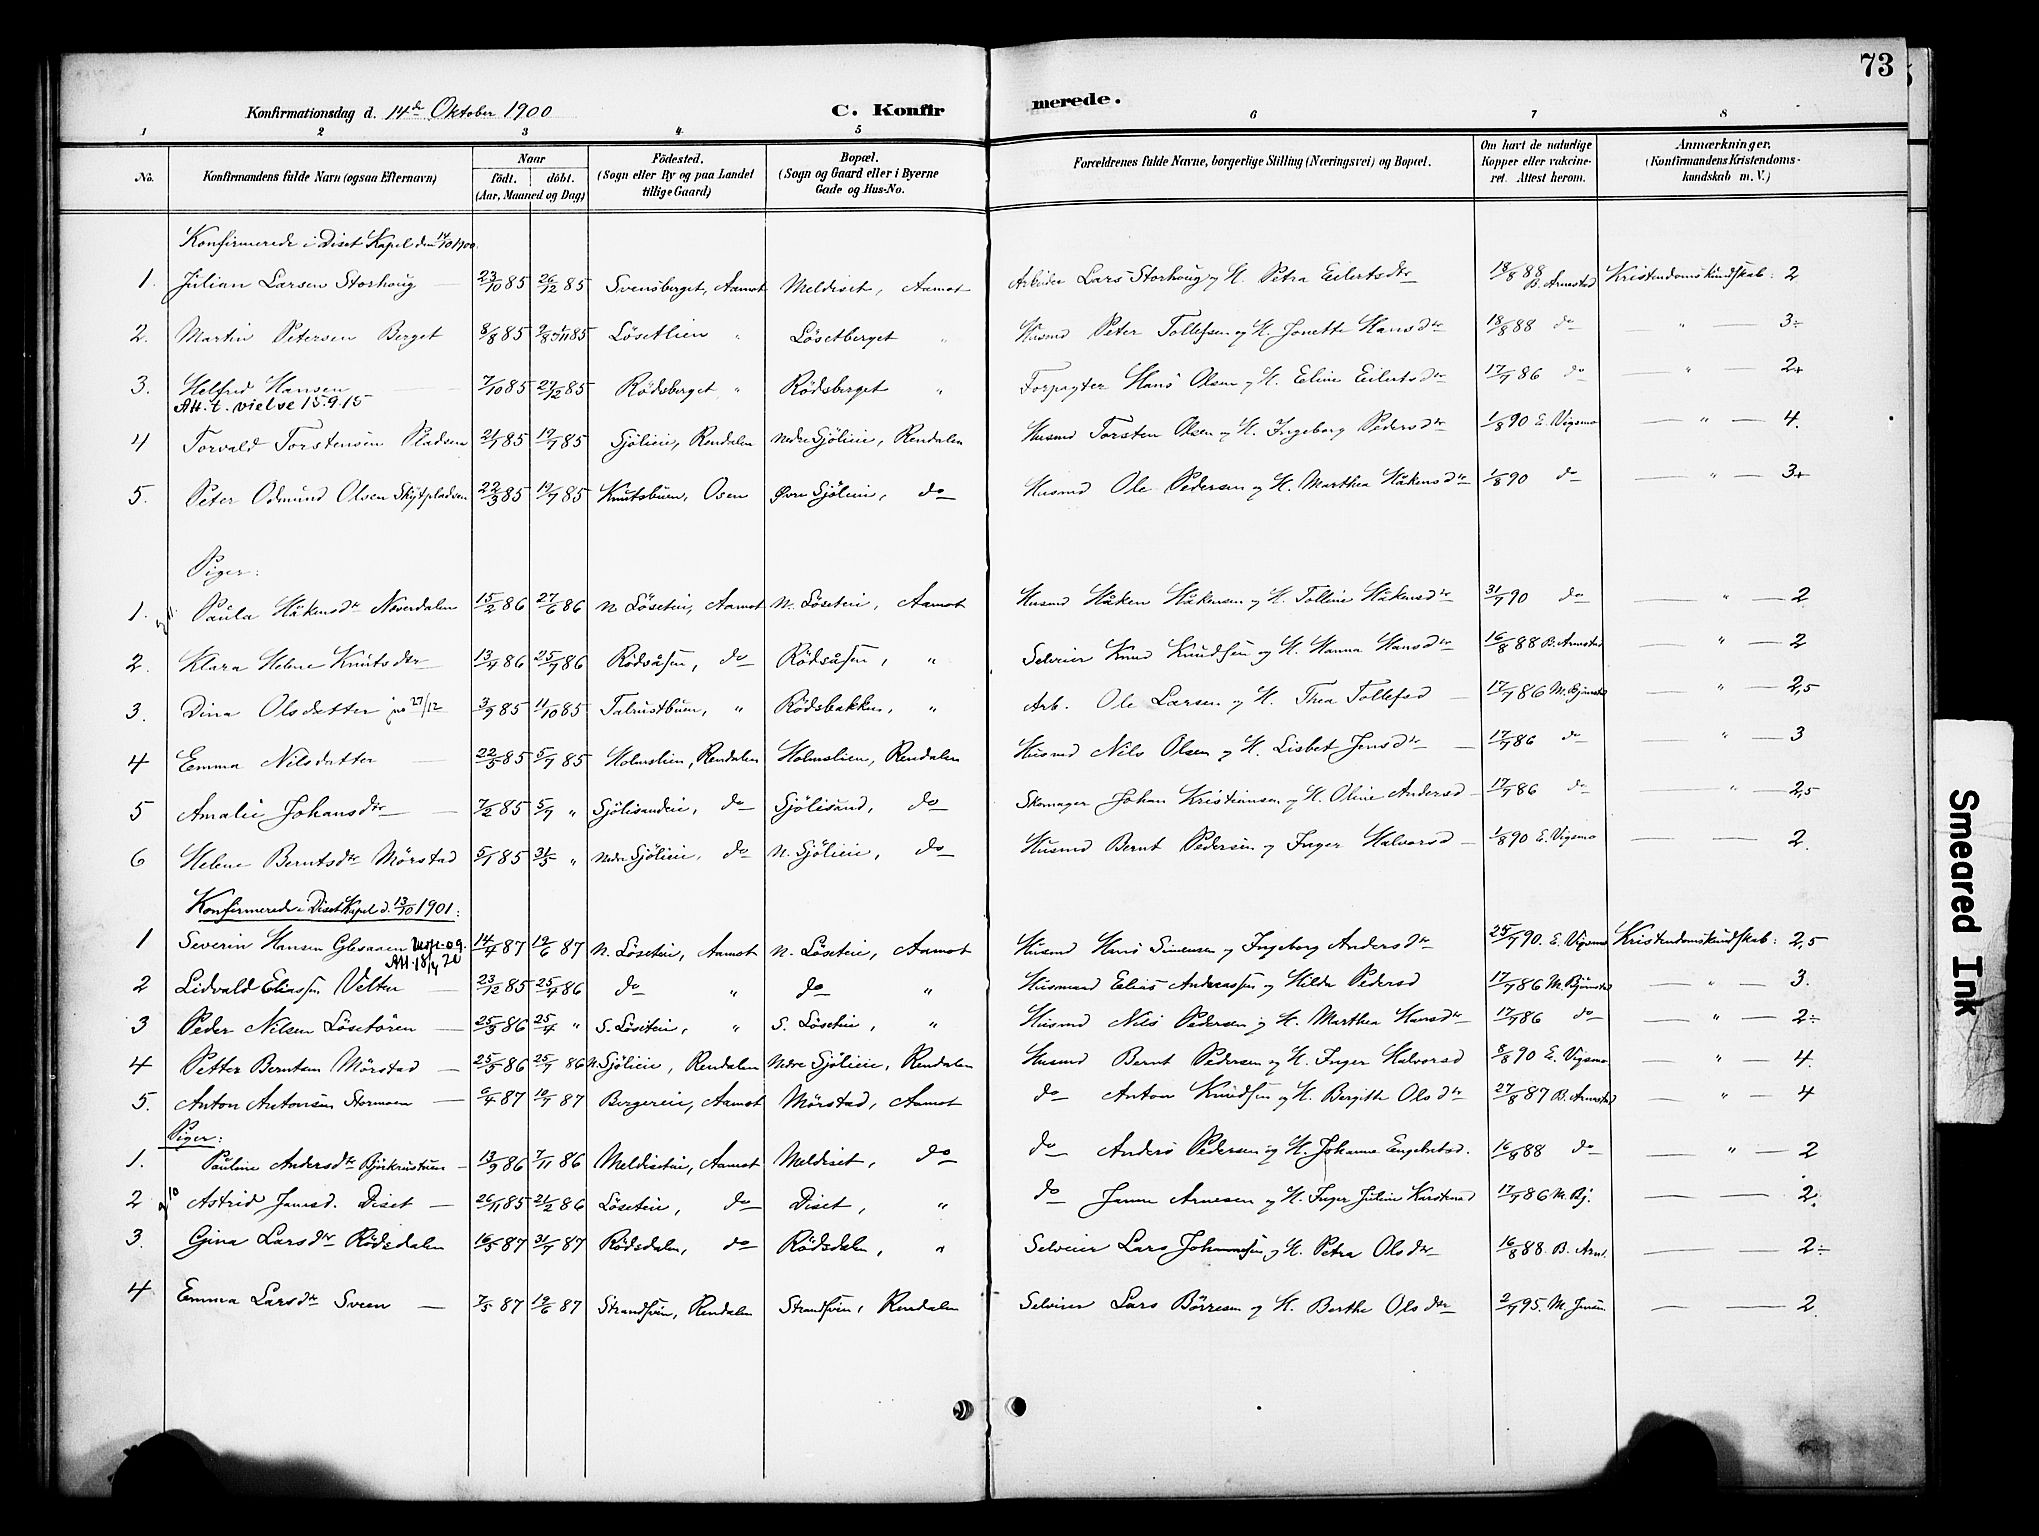 73
Konfirmationsdag d. 14de Oktober 1900 C. Konfirmerede.
1 2 3 4 5 6 7 8
No. Konfirmandens fulde Navn (ogsaa Efternavn) Naar født. døbt. (Aar, Maaned og Dag) Fødested. (Sogn eller By og paa Landet tillige Gaard) Bopæl. (Sogn og Gaard eller i Byerne Gade og Hus-No. Forældrenes fulde Navne, borgerlige Stilling (Næringsvei) og Bopæl. Om havt de naturlige Kopper eller vakcineret. Attest herom. Anmærkninger. (Konfirmandens Kristendomskundskab m. V.)
Konfirmerede i Diset Kapel den 14/10 1900.
1. Julian Larsen Storhoug 23/10 85 26/12 85 Svensberget, Aamot Meldiset, Aamot Arbeider Lars Storhoug og H. Petra Eilertsdtr 18/8 88 B. Arnestad Kristendomskundskab: 2
2. Martin Petersen Berget 8/8 85 85 Løsetlien " Løsetberget " Husmd Peter Tollefsen og H. Jonette Hansdtr 18/8 88 do — " — 3÷
3. Helfred Hansen 7/10 85 27/12 85 Rødsberget " Rødsberget " Forpagter Hans Olsen og H. Eline Eilertsdtr 17/7 86 do — " — 2+
Att. t. vielse 15.9.15
4 Torvald Torstensen Pladsen 21/1 85 19/7 85 Sjøliein, Rendalen Nedre Sjøliein, Rendalen Husmd Torsten Olsen og H. Ingeborg Pedersdtr 1/8 90 E. Vigsmo — " — 4.
5. Peter Odmund Olsen Skjytpladsen 22/3 85 19/7 85 Knutsbuen, Osen Øvre Sjøliein, do Husmd Ole Pedersen og H. Marthea Håkensdtr 1/8 90 do — " — 3+
Piger:
1. Paula Håkensdtr Neverdalen 15/2 86 27/6 86 N. Løseteie, Aamot N. Løseteie, Aamot Husmd Håken Håkensen og H. Tolline Håkensdtr 31/7 90 do — " — 2
2. Klara Helene Knutsdtr 13/4 86 25/7 86 Rødsåsen, do Rødsåsen, " Selveier Knud Knudsen og H. Hanna Hansdtr 16/8 88 B. Arnestad — " — 2
3. Dina Olsdatter 27/12 3/9 85 11/10 85 Talrustbuen, " Rødsbakken, " Arb. Ole Larsen og H. Thea Tollefsd 17/7 86 M. Bjørnstad — " — 2,5
4 Emma Nilsdatter 22/3 85 5/7 85 Holmslien, Rendalen Holmslien, Rendalen Husmd Nils Olsen og H. Lisbet Jensdtr 17/7 86 do — " — 3
5 Amalie Johansdtr 7/2 85 5/7 " Sjølisandeie, do Sjølisund, do Skomager Johan Kristiansen og H. Oline Andersd 17/7 86 do — " — 2,5
6 Helene Berntsdtr Mørstad 5/1 85 31/5 " Nedre Sjøliein, do N. Sjøliein, do Husmd Bernt Pedersen og Inger Halvorsd 1/8 90 E. Vigsmo — — 2.
Konfirmerede i Diset Kapel d. 13/10 1901:
1 Severin Hansen 14/4 87 19/6 87 N. Løseteie, Aamot N. Løseteie, Aamot Husmd Hans Simensen og Ingeborg Andersdtr 25/7 90. E. Vigsmo Kristendomskundskab: 2,5
Att. 18/4 20
2 Lidvald Eliassen Velter 23/12 85 25/4 86 do " do " Husmand Elias Andreassen og Hilda Pedersd 17/7 86 M. Bjørnstad — " — 3.
3 Peder Nilsen Løsetøren 25/3 86 25/4 " S. Løseteie, " S. Løseteie, " Husmd Nils Pedersen og H. Marthea Hansdtr 17/7 86 do — " — 2÷
4 Petter Berntsen Mørstad 25/5 86 25/7 86 N. Sjøliein, Rendalen Nedre Sjøliein, Rendalen Husmd Bernt Pedersen og H. Inger Halvorsd 8/8 90 E. Vigsmo — " — 4.
5. Anton Antonsen Stormoen 6/4 87 10/7 87 Bergereie, Aamot Mørstad, Aamot do Anton Knudsen og H. Bergitte Olsdtr 27/8 87 B. Arnestad — " — 4
Piger:
1. Pauline Andersdtr Bjørkrusttuen 13/9 86 7/11 86 Meldiseteie, Aamot Meldiset, do do Anders Pedersen og H. Johanne Engebretsd. 16/8 88 do — " — 2
2 Astrid Jansd. Diset 26/11 85 21/2 86 Løseteie, do Diset, " do Arnesen og H. Inger Juline Karstensd 17/7 86 M. Bj. — — 2.
3. Gina Larsdtr Rødsdalen 16/5 87 31/7 87 Rødsdalen, do Rødsdalen, " Selveier Lars Johannesen og H. Petra Olsdtr 16/8 88 B. Arnt. — — 2÷
4 Emma Larsdtr Sveen 7/5 87 19/6 87 Strandsveen, Rendalen Strandsveen, Rendalen Selveier Lars Børresen og H. Berthe Olsdtr 2/7 95. M. Jensen — — 2.
Smeared Ink